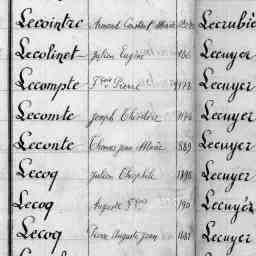 Lecointre Armand Constant Marie Lecrubie
Lecolinet Julien Eugène Lecuyer
Lecompte Fçois Pierre Lecuyer
Lecomte Joseph Théodore Lecuyer
Leconte Thomas Jean Marie 889 Lecuyer
Lecoq Julien Théophile Lecuyer
Lecoq Auguste Fçois 190 Lecuyer
Lecoq Pierre Auguste Jean Lecuyer